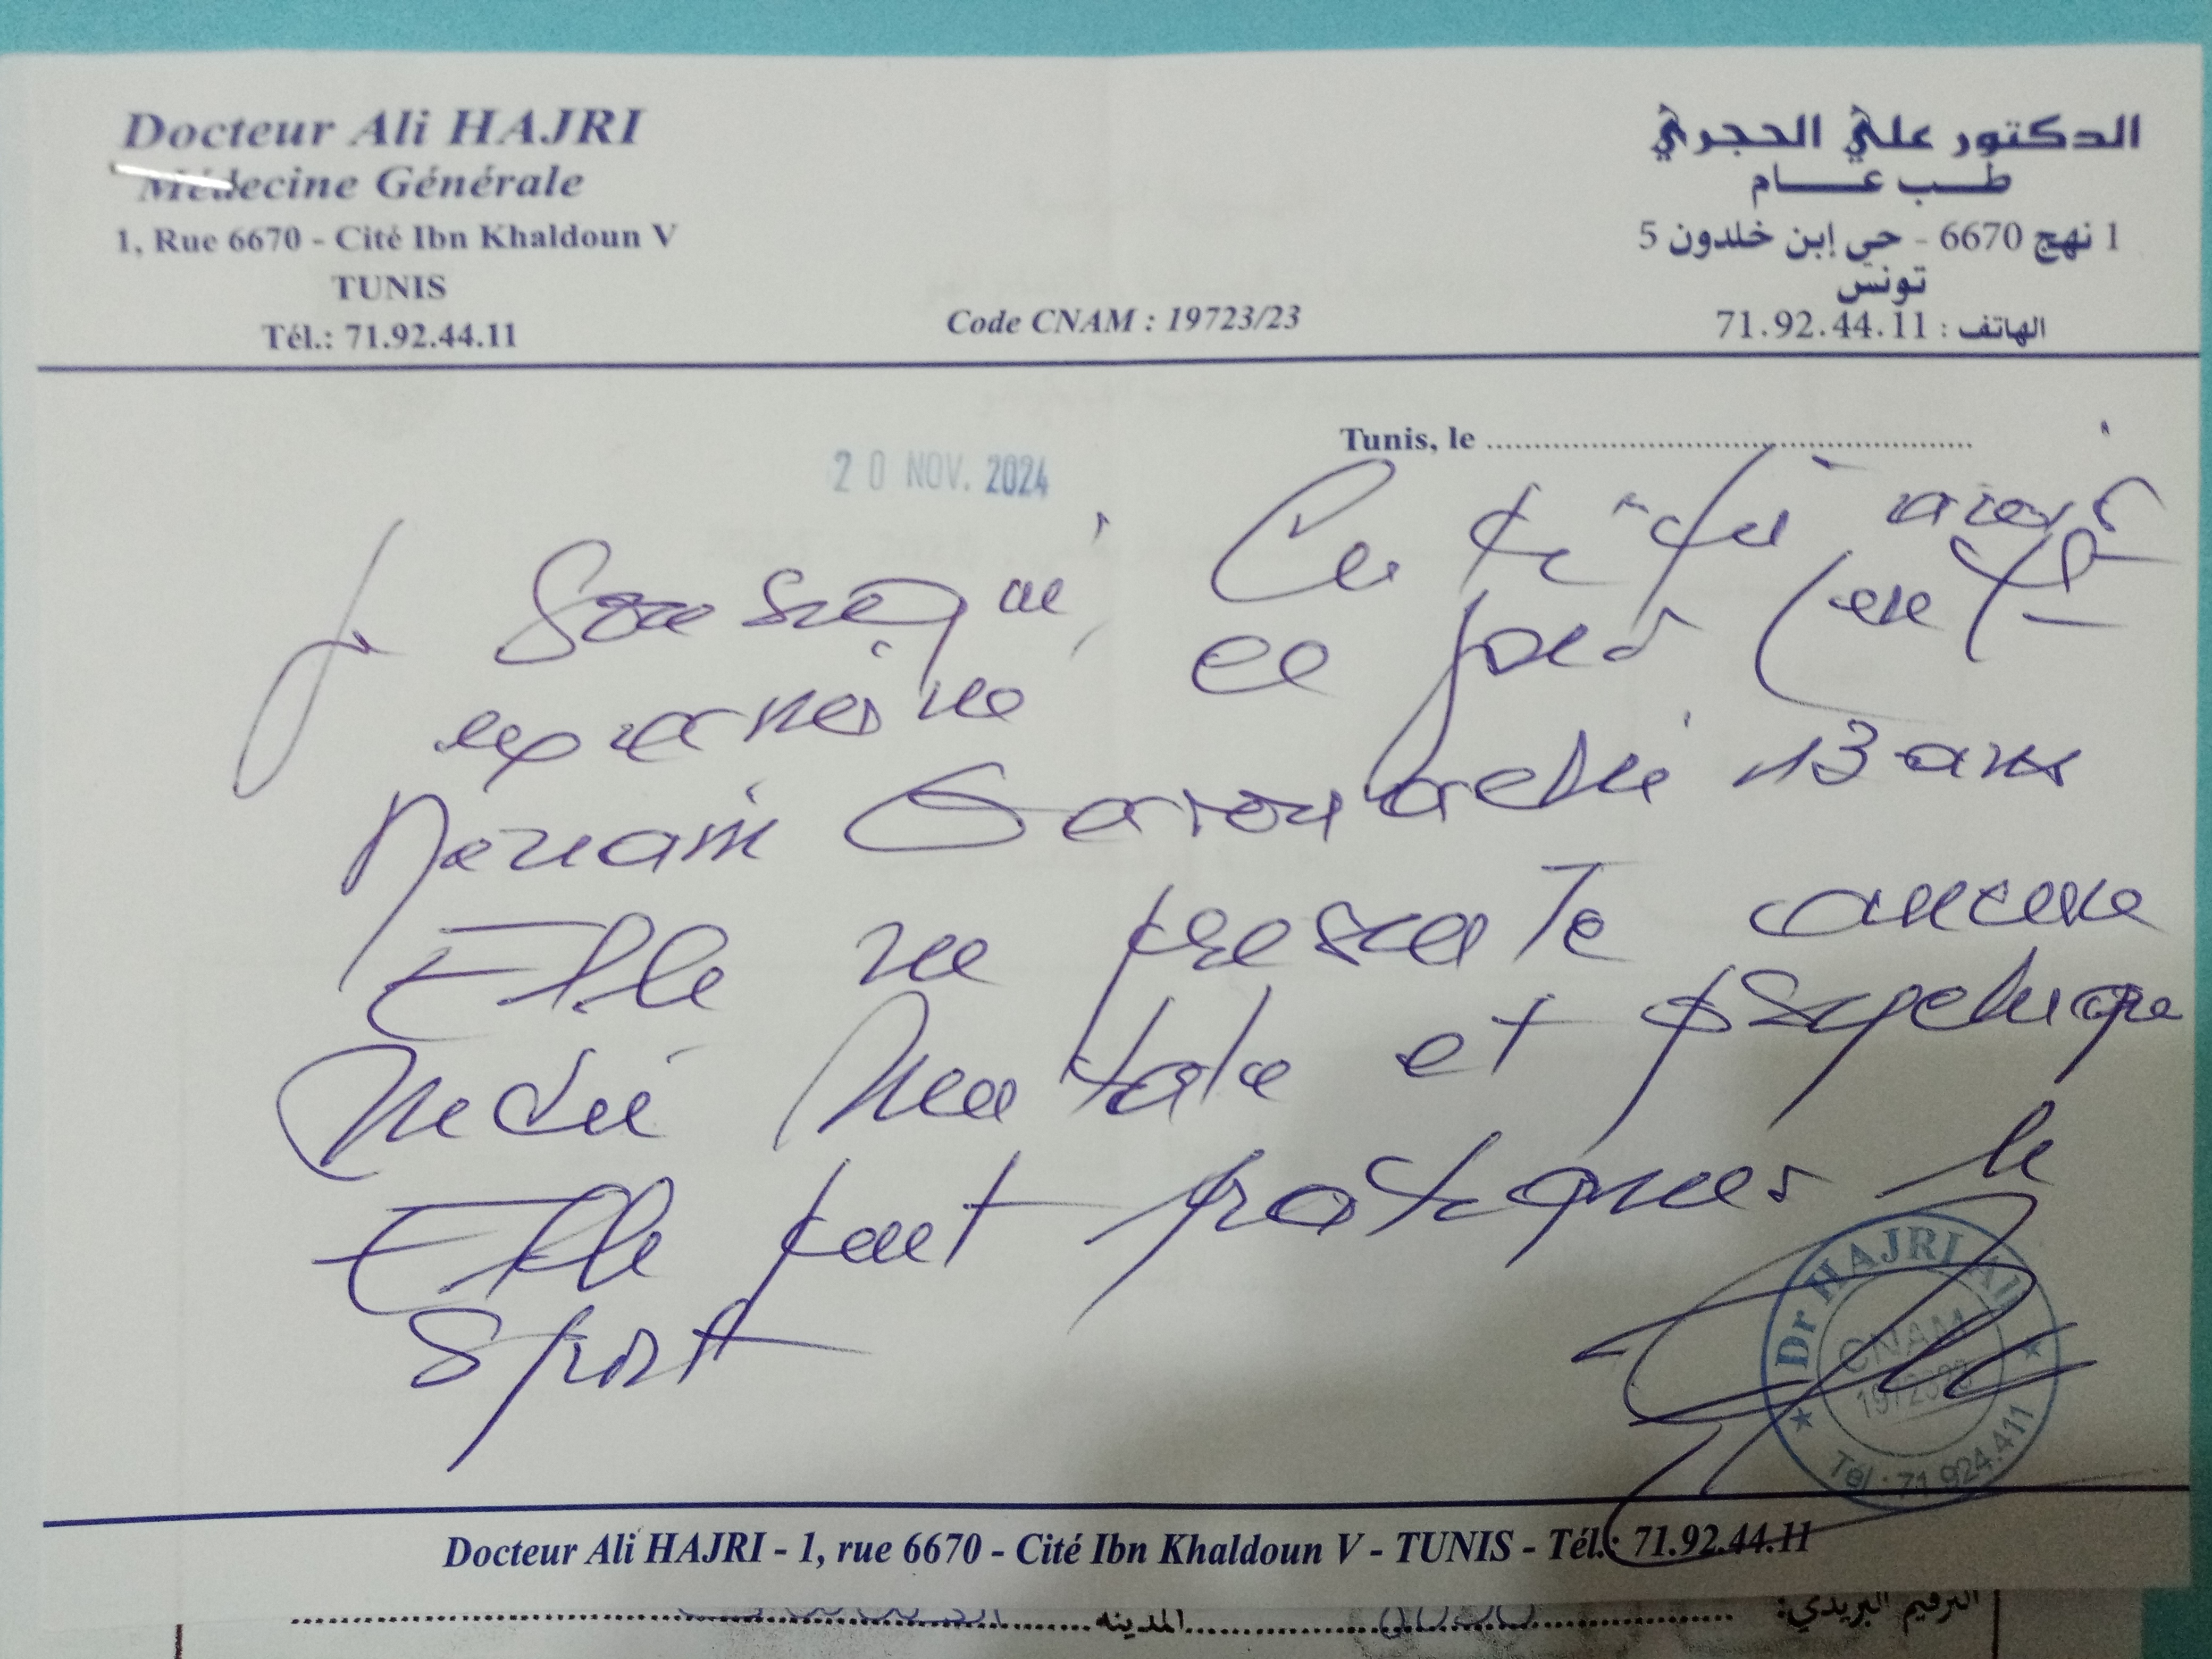 Docteur Ali HAJRI
Médecine Générale
1, Rue 6670 - Cité Ibn Khaldoun V
TUNIS
Tél.: 71.92.44.11
Code CNAM : 19723/23
الدكتور علي الحجري
طب عام
1 نهج 6670 - حي إبن خلدون 5
تونس
الهاتف : 71.92.44.11
Tunis, le
20 NOV. 2024
Je Soussigné, Certifie avoir
examiné ce jour
Mariam 13 ans
Elle ne presente aucune
mentale et psychique
Elle peut pratiquer le
Sport
Dr HAJRI Ali
CNAM
Tél : 71.924.411
Docteur Ali HAJRI - 1, rue 6670 - Cité Ibn Khaldoun V - TUNIS - Tél.: 71.92.44.11
الترقيم البريدي: المدينة